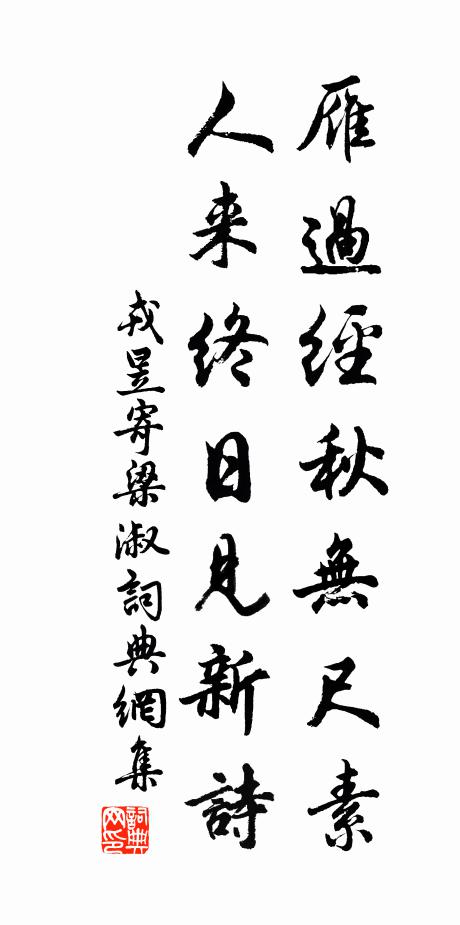 雁過經秋無尺素
人来終日見新詩
戎昱寄梁淑詞典網集
詞典网印